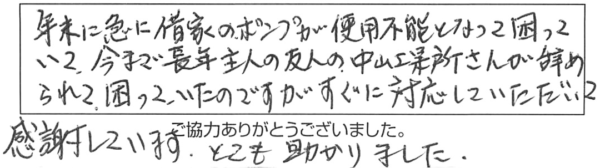 年末に急に借家のポンプが使用不能となって困って
いて、今まで長年主人の友人の、中山工業所さんが辞め
られて、困って、いたのですがすぐに対応していただいて
感謝しています。とても助かりました。
ご協力ありがとうございました。